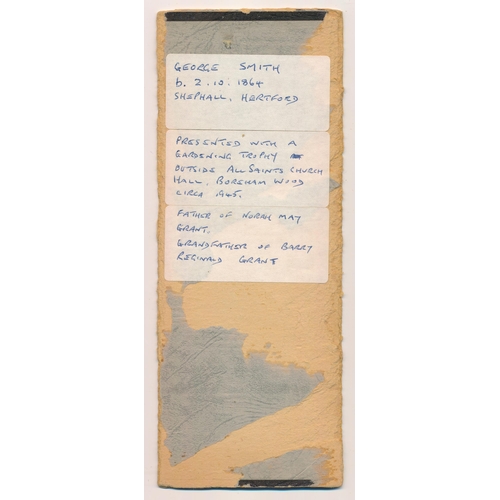 GEORGE SMITH
b. 2.10.1864
SHEPHALL, HERTFORD
PRESENTED WITH A
GARDENING TROPHY
OUTSIDE ALL SAINTS CHURCH
HALL, BOREHAM WOOD
CIRCA 1945.
FATHER OF NORAH MAY
GRANT.
GRANDFATHER OF BARRY
REGINALD GRANT